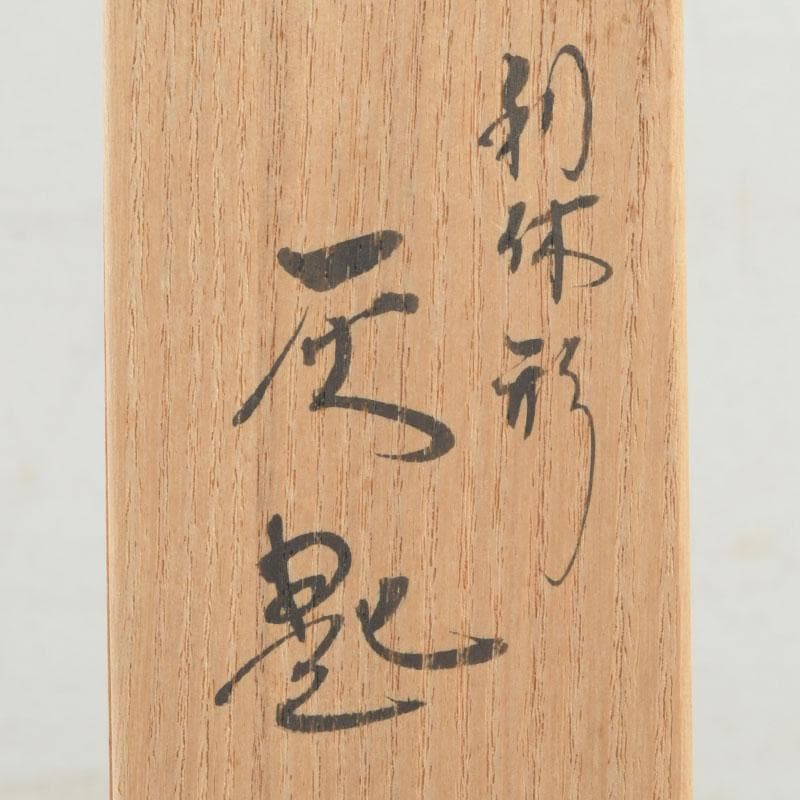 利休形
灰匙